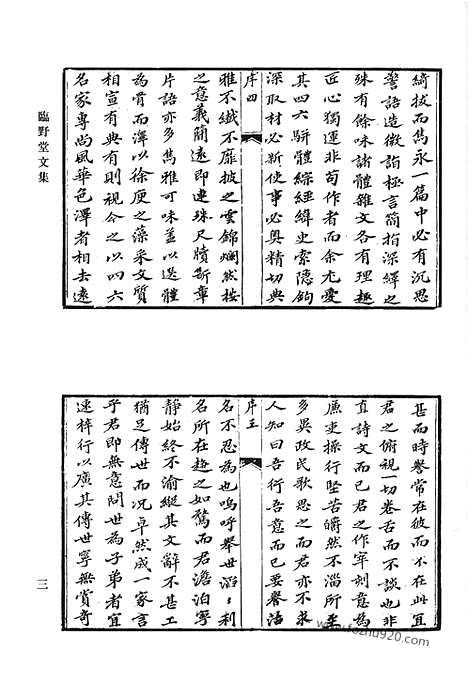 臨野堂文集
綺拔而雋永一篇中必有沉思
警語造微詣極言簡指深繹之
殊有餘味諸體雜文各有理趣
匠心獨運非苟作者而余尤愛
其四六駢體綜經緯史索隱鉤
深取材必新使事必奥精切典
序四
雅不纖不靡披之雲錦爛然按
之意義簡遠即連珠尺牘斷章
片語亦多雋雅可味蓋以選體
為骨而澤以徐庾之藻采文質
相宣有典有則視今之以四六
名家專尚風華色澤者相去遠
甚而時譽常在彼而不在此宜
君之俯視一切卷舌而不談也非
直詩文而已君之作宰刻意為
廉吏操行堅苦皭然不淄所至
多異政民歌思之而君亦不求
人知曰吾行吾意而已要譽沽
序五
名不忍為也嗚呼舉世滔滔利
名所在趨之如騖而君澹泊寧
静始終不渝縱其文辭不甚工
猶足傳世而况卓然成一家言
乎君即無意問世為子弟者宜
速梓行以廣其傳世寧無賞奇
三
www.fozhu920.com